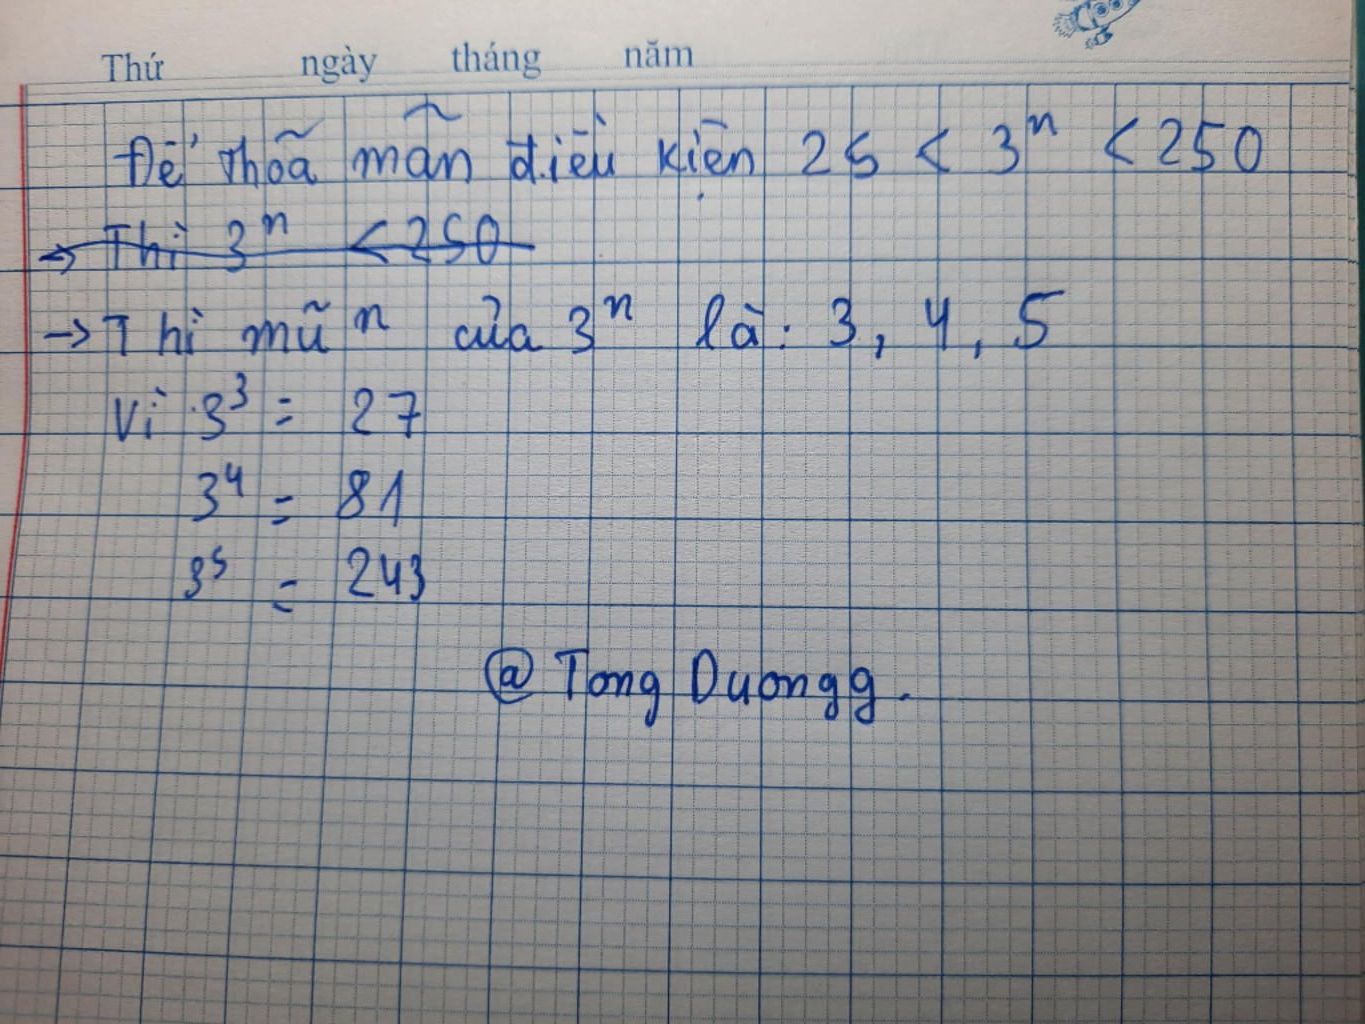 Thứ ngày tháng năm
Để thõã mãn điều kiện 25 < 3ⁿ < 250
→ Thì 3ⁿ < 250
→ Thì mũ n của 3ⁿ là: 3, 4, 5
Vì 3³ = 27
3⁴ = 81
3⁵ = 243
@ Tong Duongg.